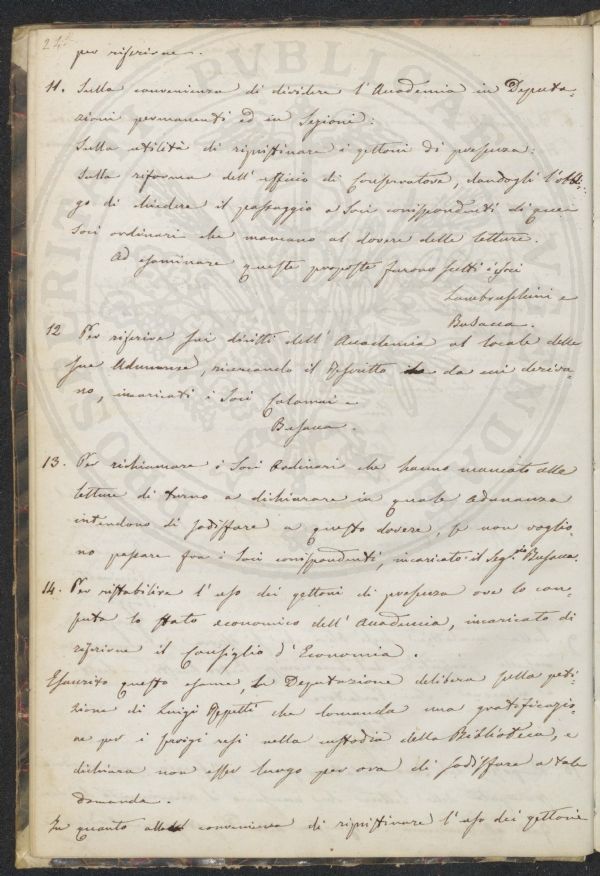 24
per riferirne.
11. Sulla convenienza di dividere l'Accademia in Deputa-
zioni permanenti ed in Sezioni:
Sulla utilità di ripristinare i gettoni di presenza:
Sulla riforma dell'ufficio di Conservatore, dandogli l'obbli-
go di chiedere il passaggio a Soci corrispondenti di quei
Soci ordinari che mancano al dovere delle letture.
Ad esaminare queste proposte furono scelti i Soci
Lambruschini e
Busacca.
12 Per riferire sui diritti dell'Accademia al locale delle
sue Adunanze, ricercando il Rescritto da cui deriva-
no, incaricati i Soci Calamai e
Busacca.
13. Per richiamare i Soci Ordinari che hanno mancato alle
letture di turno a dichiarare in quale Adunanza
intendono di sodisfare a questo dovere, se non voglio-
no passare fra i Soci corrispondenti, incaricato il Seg.rio Busacca.
14. Per ristabilire l'uso dei gettoni di presenza ove lo com-
porta lo stato economico dell'Accademia, incaricato di
riferirne il Consiglio d'Economia.
Esaurito questo esame, la Deputazione delibera sulla peti-
zione di Luigi Repetti che domanda una gratificazio-
ne per i servigi resi nella custodia della Biblioteca, e
dichiara non esser luogo per ora di sodisfare a tale
domanda.
In quanto alla convenienza di ripristinare l'uso dei gettoni
PROSPERITATI PUBLICAE AUGENDAE